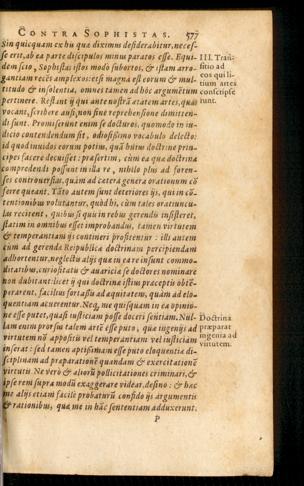 CONTRA SOPHISTAS. 577
Sin quicquam ex his quæ diximus desiderabitur, neces-
se erit, ab ea parte discipulos minus paratos esse. Equi-
dem scio, Sophistas istos modò subortos, & istam arro-
gantiam recēs amplexos: etsi magna est eorum & mul-
titudo & insolentia, omnes tamen ad hoc argumētum
pertinere. Restāt ij qui ante nostrā ætatem artes, quas
vocant, scribere ausi, non sine reprehensione dimitten-
di sunt. Promiserunt enim se docturos, quomodo in iu-
dicio contendendum sit, odiosissimo vocabulo delecto:
id quod inuidos eorum potius, quā huius doctrinæ prin-
cipes facere decuisset: præsertim, cùm ea quæ doctrina
comprehendi possunt in illa re, nihilo plus ad foren-
ses controuersias, quàm ad cætera genera orationum cō
ferre queant. Tāto autem sunt deteriores ijs, qui in cō-
tentionibus volutantur, quòd hi, cùm tales oratiuncu-
las recitent, quibus si quis in rebus gerendis insisteret,
statim in omnibus esset improbandus, tamen virtutem
& temperantiam ijs contineri profitentur: illi autem
cum ad gerendæ Reipublicæ doctrinam percipiendam
adhortentur, neglectis alijs quæ in ea re insunt commo-
ditatibus, curiositatis & auaritiæ se doctores nominare
non dubitant: licet ij qui doctrinæ istius præceptis obtē-
perarent, facilius fortassis ad æquitatem, quàm ad elo-
quentiam acuerentur. Neq, me quisquam in ea opinio-
ne esse putet, quasi iustitiam posse doceri sentiam. Nul-
lam enim prorsus talem artē esse puto, quæ ingenijs ad
virtutem nō appositis vel temperantiam vel iustitiam
inserat: sed tamen aptissimam esse puto eloquentiæ di-
sciplinam ad præparationē quandam & exercitationē
virtutis. Ne verò & aliorū pollicitationes criminari, &
ipse rem supra modū exaggerare videar, desino: & hæc
me alijs etiam facilè probaturū confido ijs argumentis
& rationibus, quæ me in hāc sententiam adduxerunt.
P
III. Tran-
sitio ad
eos qui li-
tium artes
conscripse
runt.
Doctrina
præparat
ingenia ad
virtutem.